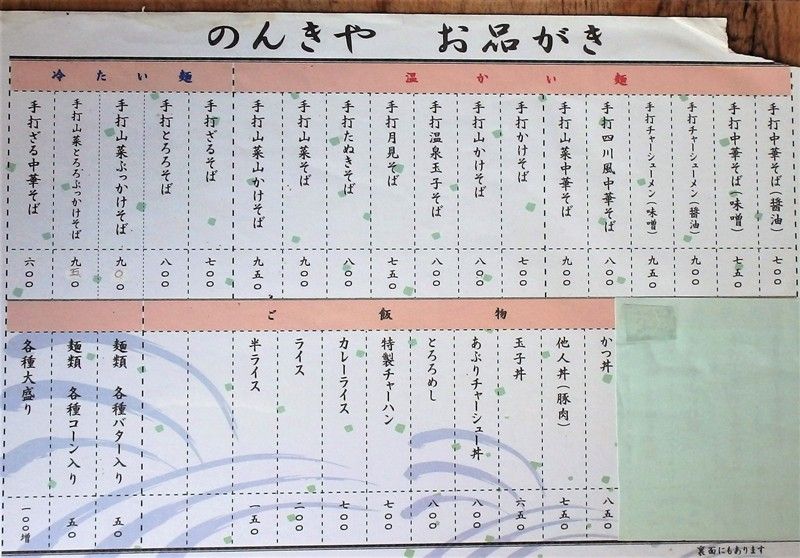 のんきや お品がき
温かい麺
手打中華そば(醤油) 七〇〇
手打中華そば(味噌) 七五〇
手打チャーシューメン(醤油) 九〇〇
手打チャーシューメン(味噌) 九五〇
手打四川風中華そば 八〇〇
手打山菜中華そば 九〇〇
手打かけそば 七〇〇
手打山かけそば 八〇〇
手打温泉玉子そば 八〇〇
手打月見そば 七五〇
手打たぬきそば 八〇〇
手打山菜そば 九〇〇
手打山菜山かけそば 九五〇
冷たい麺
手打ざるそば 七〇〇
手打とろろそば 八〇〇
手打山菜ぶっかけそば 九〇〇
手打山菜とろろぶっかけそば 九五〇
手打ざる中華そば 六〇〇
ご飯物
かつ丼 八五〇
他人丼(豚肉) 七五〇
玉子丼 六五〇
あぶりチャーシュー丼 八〇〇
とろろめし 八〇〇
特製チャーハン 七〇〇
カレーライス 七〇〇
ライス 二〇〇
半ライス 一五〇
麺類 各種バター入り 五〇
麺類 各種コーン入り 五〇
各種大盛り 一〇〇増
裏面にもあります